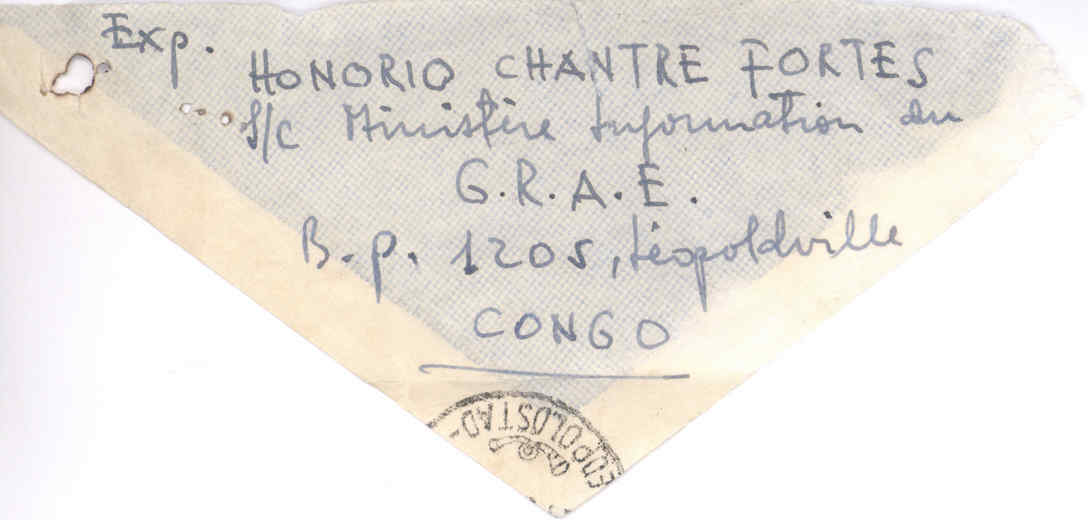 Exp.
HONORIO CHANTRE FORTES
S/c Ministère Information du
G.R.A.E.
B.P. 1205, Léopoldville
CONGO
EOPOLDSTAD-